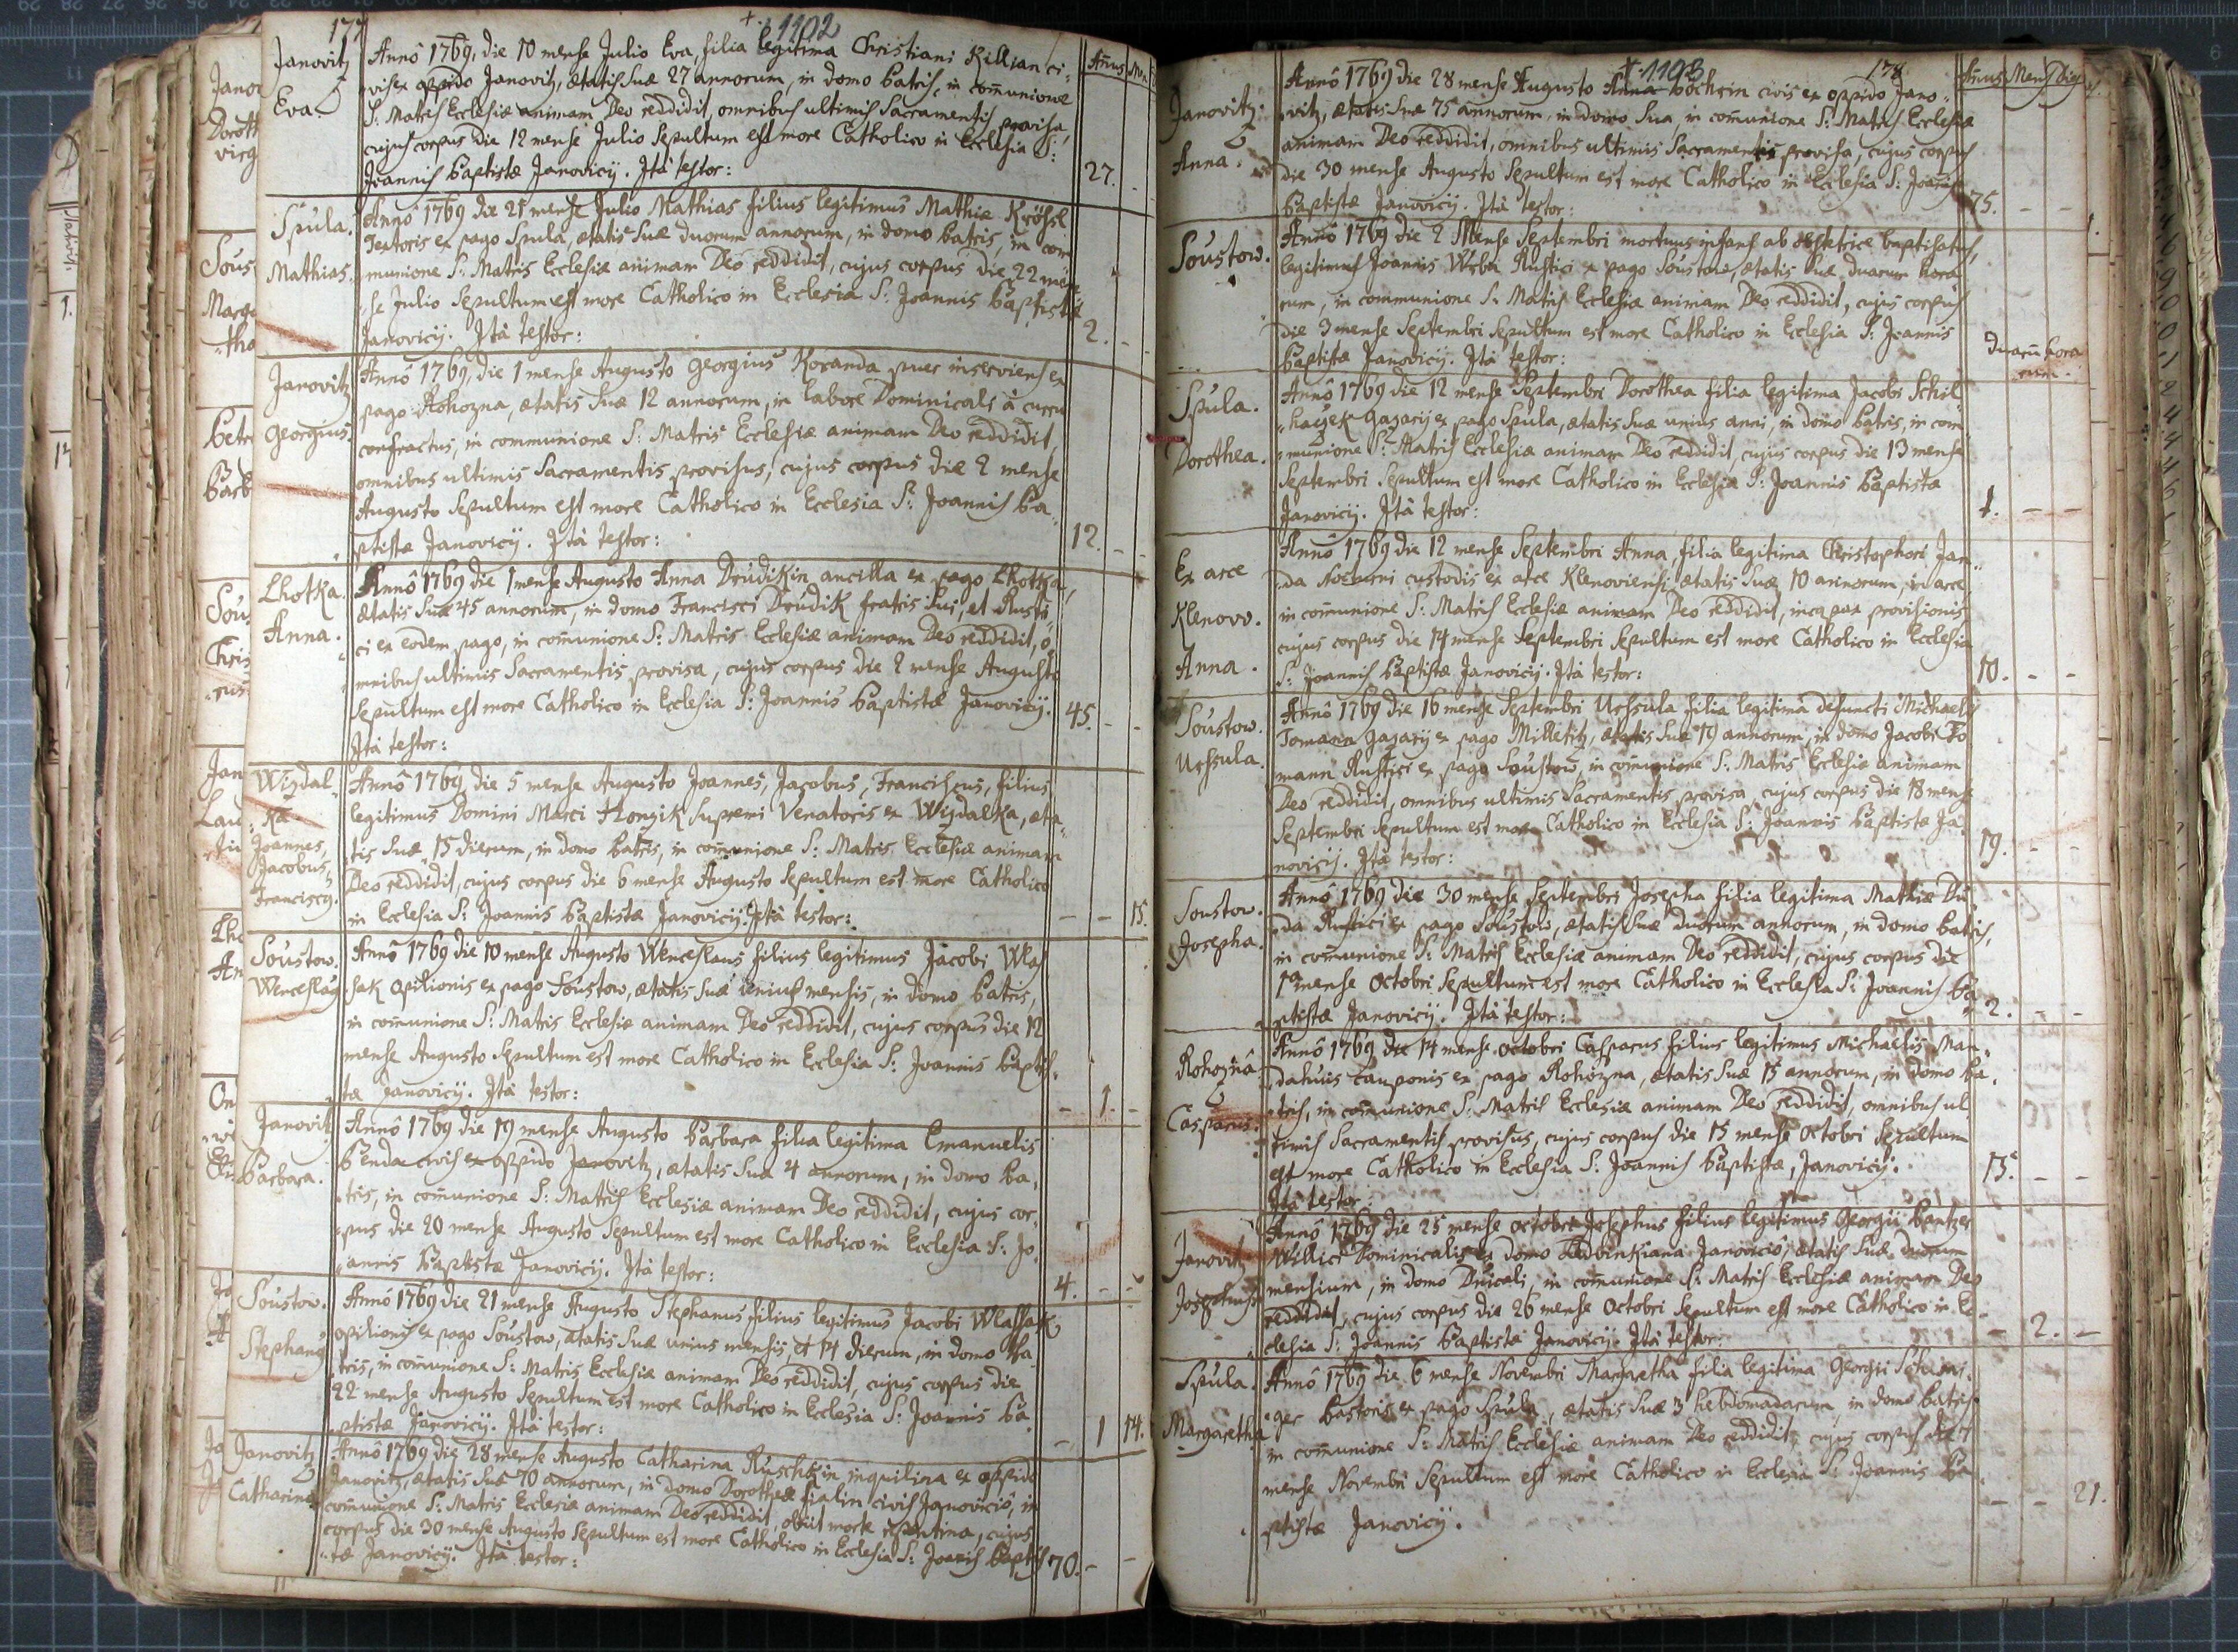 177
+ 1102
Annus Men
Janovitz
Eva.
Annô 1769, die 10 mense Julio Eva, filia legitima Christiani Killian ci„
„vis ex oppido Janovitz, ætatis suæ 27 annorum, in domo Patris, in comunione
S: Matris Ecclesiæ animam Deo reddidit, omnibus ultimis Sacramentis provisa,
cujus corpus die 12 mense Julio Sepultum est more Catholico in Ecclesia S:
Joannis Baptistæ Janovicij. Jtà testor:
27.
Spula.
Mathias.
Annô 1769 die 21 mense Julio Mathias filius legitimus Mathiæ Krössl
Textoris ex pago Spula, ætatis suæ duorum annorum, in domo Patris, in com
munione S: Matris Ecclesiæ animam Deo reddidit, cujus corpus die 22 men
se Julio Sepultum est more Catholico in Ecclesia S: Joannis Baptistæ
Janovicij. Jtà testor:
2.
Janovitz
Georgius.
Annô 1769, die 1 mense Augusto Georgius Koranda puer inserviens ex
pago Rohozna, ætatis suæ 12 annorum, in labore Dominicali à curru
confractus, in communione S: Matris Ecclesiæ animam Deo reddidit,
omnibus ultimis Sacramentis provisus, cujus corpus die 2 mense
Augusto Sepultum est more Catholico in Ecclesia S: Joannis Ba„
ptistæ Janovicij. Jtà testor:
12.
Lhotka.
Anna.
Annô 1769 die 1 mense Augusto Anna Drudikin ancilla ex pago Lhotka,
ætatis suæ 45 annorum, in domo Francisci Drudik fratis sui, et Rusti„
ci ex eodem pago, in comunione S: Matris Ecclesiæ animam Deo reddidit, o„
mnibus ultimis Sacramentis provisa, cujus corpus die 2 mense Augusto
Sepultum est more Catholico in Ecclesia S: Joannis Baptistæ Janovicij.
Jtà testor:
45.
Wijdal„
ka
Joannes,
Jacobus,
Franciscus.
Annô 1769, die 5 mense Augusto Joannes, Jacobus, Franciscus, filius
legitimus Domini Marci Honzik Supremi Venatoris ex Wijdalka, æta„
tis suæ 15 dierum, in domo Patris, in comunione S: Matris Ecclesiæ animam
Deo reddidit, cujus corpus die 6 mense Augusto Sepultum est more Catholico
in Ecclesia S: Joannis Baptistæ Janovicij. Jtà testor:
- - 15.
Soustow.
Wenceslaus
Annô 1769 die 10 mense Augusto Wenceslaus filius legitimus Jacobi Wlas
sak Opilionis ex pago Soustow, ætatis suæ unius mensis, in domo Patris,
in comunione S: Matris Ecclesiæ animam Deo reddidit, cujus corpus die 12
mense Augusto Sepultum est more Catholico in Ecclesia S: Joannis Baptis„
tæ Janovicij. Jtà testor:
- 1. -
Janovitz
Barbara.
Annô 1769 die 19 mense Augusto Barbara filia legitima Emanuelis
Benda civis ex oppido Janovitz, ætatis suæ 4 annorum, in domo Pa„
tris, in comunione S: Matris Ecclesiæ animam Deo reddidit, cujus cor„
„pus die 20 mense Augusto Sepultum est more Catholico in Ecclesia S: Jo„
annis Baptistæ Janovicij. Jtà testor:
4. - -
Soustow.
Stephanus
Annô 1769 die 21 mense Augusto Stephanus filius legitimus Jacobi Wlassak
opilionis ex pago Soustow, ætatis suæ unius mensis, et 14 dierum, in domo Pa
tris, in comunione S: Matris Ecclesiæ animam Deo reddidit, cujus corpus die
22 mense Augusto Sepultum est more Catholico in Ecclesia S: Joannis Ba
ptistæ Janovicij. Jtà testor:
- 1 14.
Janovitz
Catharina
Annô 1769 die 28 mense Augusto Catharina Ruschkin inquilina ex oppido
Janovitz, ætatis suæ 70 annorum, in domo Dorotheæ fialin civis Janovicio, in
comunione S: Matris Ecclesiæ animam Deo reddidit, obiit morte repentina, cujus
corpus die 30 mense Augusto Sepultum est more Catholico in Ecclesia S: Joanis Baptis
tæ Janovicij. Jtà testor:
70. - -
+ 1103
178
Annus Mens Dies
Janovitz.
Anna.
Annô 1769 die 28 mense Augusto Anna civis ex oppido Jano„
vitz, ætatis suæ 75 annorum, in domo sua, in comunione S: Matris Ecclesiæ
animam Deo reddidit, omnibus ultimis Sacramentis provisa, cujus corpus
die 30 mense Augusto Sepultum est more Catholico in Ecclesia S: Joanis
Baptistæ Janovicij. Jtà testor:
75. - -
Soustow.
Annô 1769 die 2 Mense Septembri mortuus infans ab obstetrice baptisatus,
legitimus Joannis Wrba Rustici ex pago Soustow, ætatis suæ duarum hora
rum, in communione S: Matris Ecclesiæ animam Deo reddidit, cujus corpus
die 3 mense Septembri Sepultum est more Catholico in Ecclesia S: Joannis
Baptistæ Janovicij. Jtà testor:
duarū hora
rum.
Spula.
Dorothea.
Annô 1769 die 12 mense Septembri Dorothea filia legitima Jacobi Schil
hacjek Gazarij ex pago Spula, ætatis suæ unius anni, in domo Patris, in com„
munione S: Matris Ecclesiæ animam Deo reddidit, cujus corpus die 13 mense
Septembri Sepultum est more Catholico in Ecclesia S: Joannis Baptistæ
Janovicij. Jtà testor:
1. - -
Ex arce
Klenow.
Anna.
Annô 1769 die 12 mense Septembri Anna, filia legitima Christophori Jan„
da Nocturni custodis ex arce Klenoviensi, ætatis suæ 10 annorum, in arce
in comunione S: Matris Ecclesiæ animam Deo reddidit, incapax provisionis,
cujus corpus die 14 mense Septembri Sepultum est more Catholico in Ecclesia
S: Joannis Baptistæ Janovicij. Jtà testor:
10. - -
Soustow.
Urssula.
Annô 1769 die 16 mense Septembri Urssula filia legitima defuncti Michaelis
Tomann Gazarij ex pago Milletitz, ætatis suæ 19 annorum, in domo Jacobi To
mann Rustici ex pago Soustow, in comunione S: Matris Ecclesiæ animam
Deo reddidit, omnibus ultimis Sacramentis provisa cujus corpus die 18 mense
Septembri Sepultum est more Catholico in Ecclesia S: Joannis Baptistæ Ja„
novicij. Jtà testor:
19. - -
Soustow.
Josepha.
Annô 1769 die 30 mense Septembri Josepha filia legitima Mathiæ Du„
da Rustici ex pago Soustow, ætatis suæ duorum annorum, in domo Patris,
in comunione S: Matris Ecclesiæ animam Deo reddidit, cujus corpus die
1ma mense Octobri Sepultum est more Catholico in Ecclesia S: Joannis Ba
ptistæ Janovicij. Jtà testor:
2. - -
Rohozna.
Casparus.
Annô 1769 die 14 mense Octobri Casparus filius legitimus Michaelis Man„
dahuis Cauponis ex pago Rohozna, ætatis suæ 15 annorum, in domo Pa„
tris, in comunione S: Matris Ecclesiæ animam Deo reddidit, omnibus ul
timis Sacramentis provisus, cujus corpus die 15 mense Octobri Sepultum
est more Catholico in Ecclesia S: Joannis Baptistæ, Janovicij.
Jtà testor:
15. - -
Janovitz
Josephus
Annô 1769 die 25 mense Octobri Josephus filius legitimus Georgii Pantzer
Willici Dominicalis ex domo Janovicio, ætatis suæ duorum
mensium, in domo Dnicali, in comunione S: Matris Ecclesiæ animam Deo
reddidit, cujus corpus die 26 mense Octobri Sepultum est more Catholico in Ec„
clesia S: Joannis Baptistæ Janovicij. Jtà testor:
- 2. -
Spula.
Margaretha
Annô 1769 die 6 mense Novembri Margaretha filia legitima Georgii
ger Pastoris ex pago Spula, ætatis suæ 3 hebdomadarum, in domo Patris
in comunione S: Matris Ecclesiæ animam Deo reddidit, cujus corpus die 7
mense Novembri Sepultum est more Catholico in Ecclesia S: Joannis Ba
ptistæ Janovicij.
- - 21.